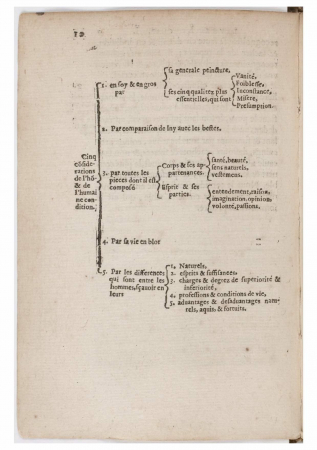 10
1. en soy & en gros par
sa generale peincture,
ses cinq qualitez plus essentielles, qui sont
Vanité,
Foiblesse,
Inconstance,
Misere,
Presomption.
2. Par comparaison de luy auec les bestes.
Cinq
cõside-
rations
de l'hõ-
& de
l'humai
ne con-
dition.
3. par toutes les
pieces dont il est
composé
Corps & ses ap-
partenances.
santé, beauté,
sens naturels,
vestemens.
Esprit & ses
parties.
entendement, raison,
imagination, opinion,
volonté, passions.
4. Par sa vie en bloc
5. Par les differences
qui sont entre les
hommes, sçauoir en
leurs
1. Naturels,
2. esprits & suffisances,
3. charges & degrez de superiorité &
inferiorité,
4. professions & conditions de vie,
5. aduantages & desaduantages natu-
rels, aquis, & fortuits.